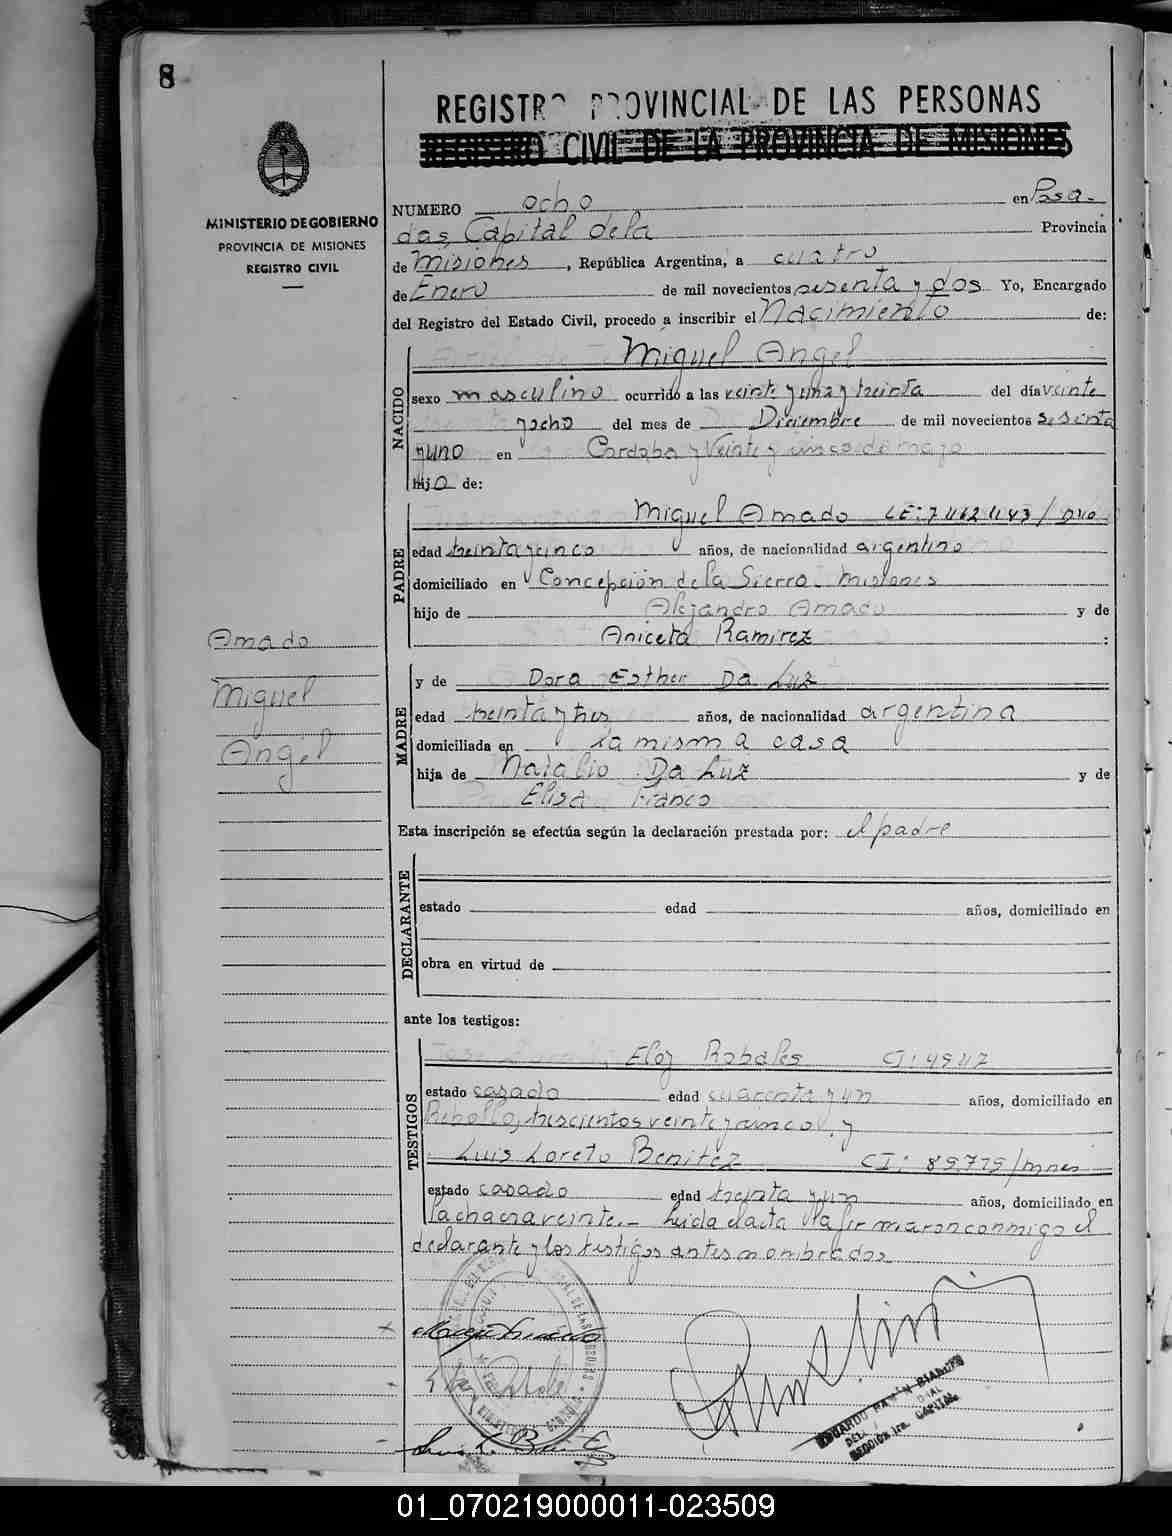 8
REGISTRO PROVINCIAL DE LAS PERSONAS
REGISTRO CIVIL DE LA PROVINCIA DE MISIONES
MINISTERIO DE GOBIERNO
PROVINCIA DE MISIONES
REGISTRO CIVIL
NUMERO ocho en Posa-
das, Capital de la Provincia
de Misiones, República Argentina, a cuatro
de Enero de mil novecientos sesenta y dos Yo, Encargado
del Registro del Estado Civil, procedo a inscribir el Nacimiento de:
NACIDO
Miguel Angel
sexo masculino ocurrido a las veinte y una y treinta del día veinte
y ocho del mes de Diciembre de mil novecientos sesenta
y uno en Cordoba y Veinte y cinco de mayo
hijo de:
PADRE
Miguel Amado LE:
edad treinta y cinco años, de nacionalidad argentino
domiciliado en Concepción de la Sierra Misiones
hijo de Alejandro Amado y de
Aniceta Ramirez :
Amado
Miguel
Angel
MADRE
y de Dora Esther Da Luz
edad treinta y tres años, de nacionalidad argentina
domiciliada en la misma casa
hija de Natalio Da Luz y de
Elisa Franco
Esta inscripción se efectúa según la declaración prestada por: el padre
DECLARANTE
estado edad años, domiciliado en
obra en virtud de
ante los testigos:
TESTIGOS
Eloy Robales CI: 4947
estado casado edad cuarenta y un años, domiciliado en
Rebollo, trescientos veinte y cinco, y
Luis Loreto Benitez CI: 89.779/mnes
estado casado edad treinta y un años, domiciliado en
la chacra veinte.- Leida el acta la firmaron conmigo el
declarante y los testigos antes nombrados
01_070219000011-023509